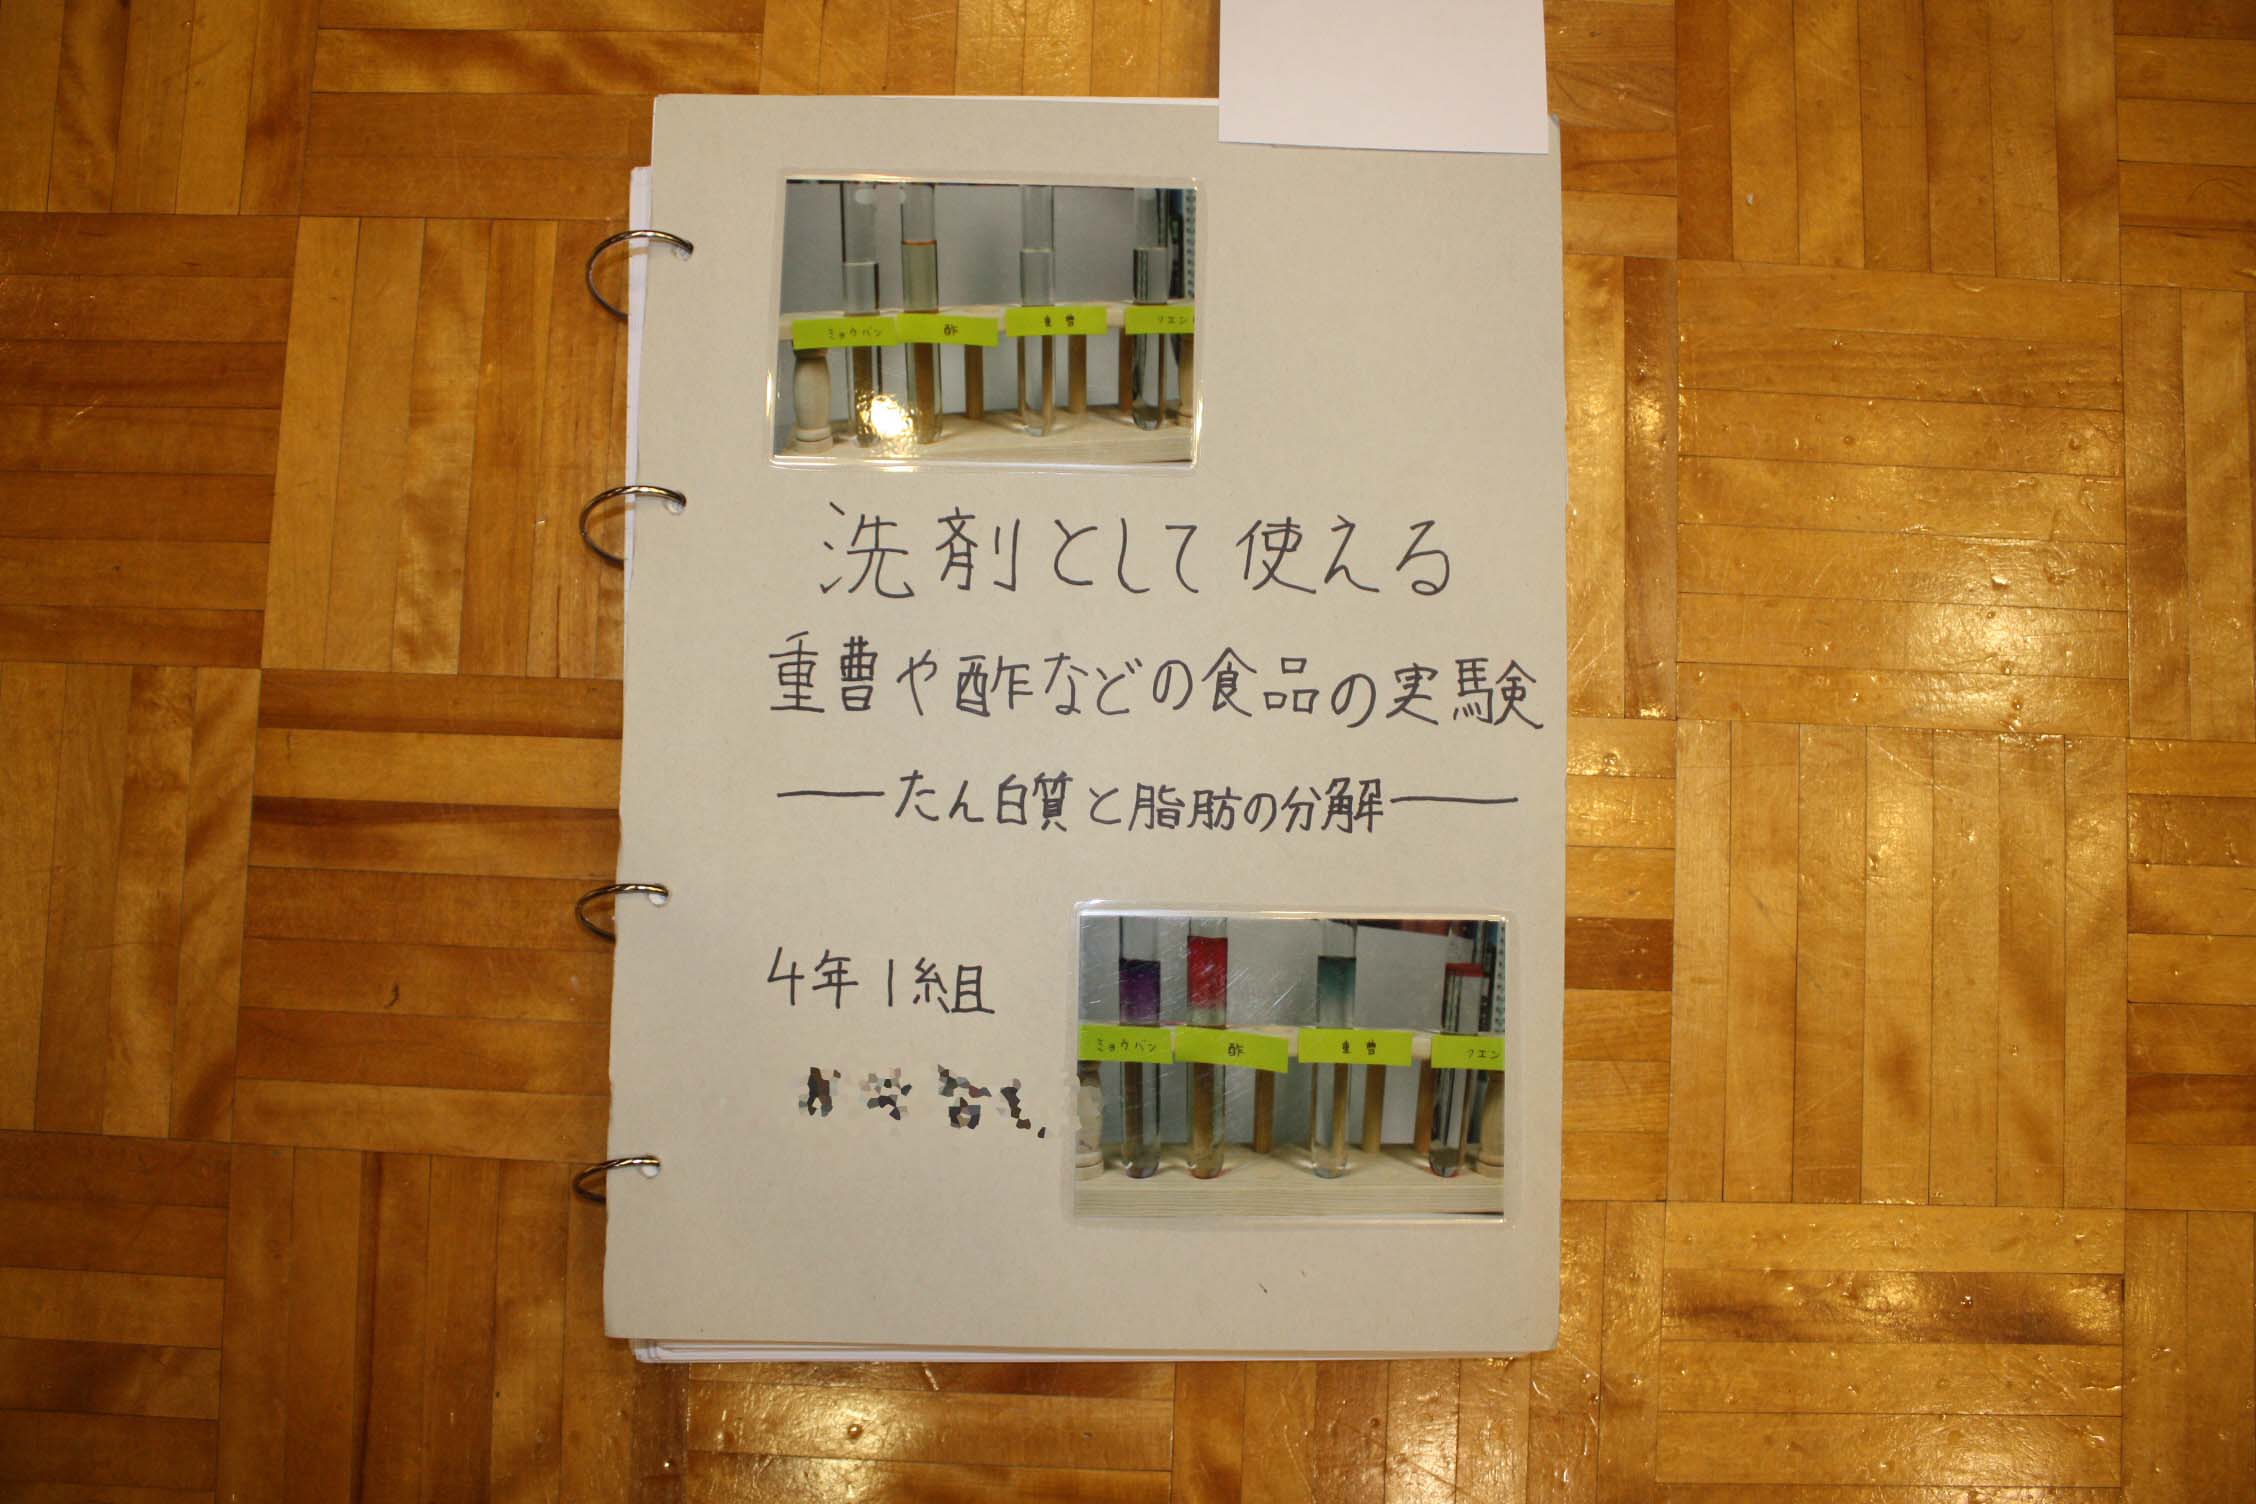 ミョウバン
酢
重曹
クエン
洗剤として使える
重曹や酢などの食品の実験
―たん白質と脂肪の分解―
4年1組
ミョウバン
酢
重曹
クエン